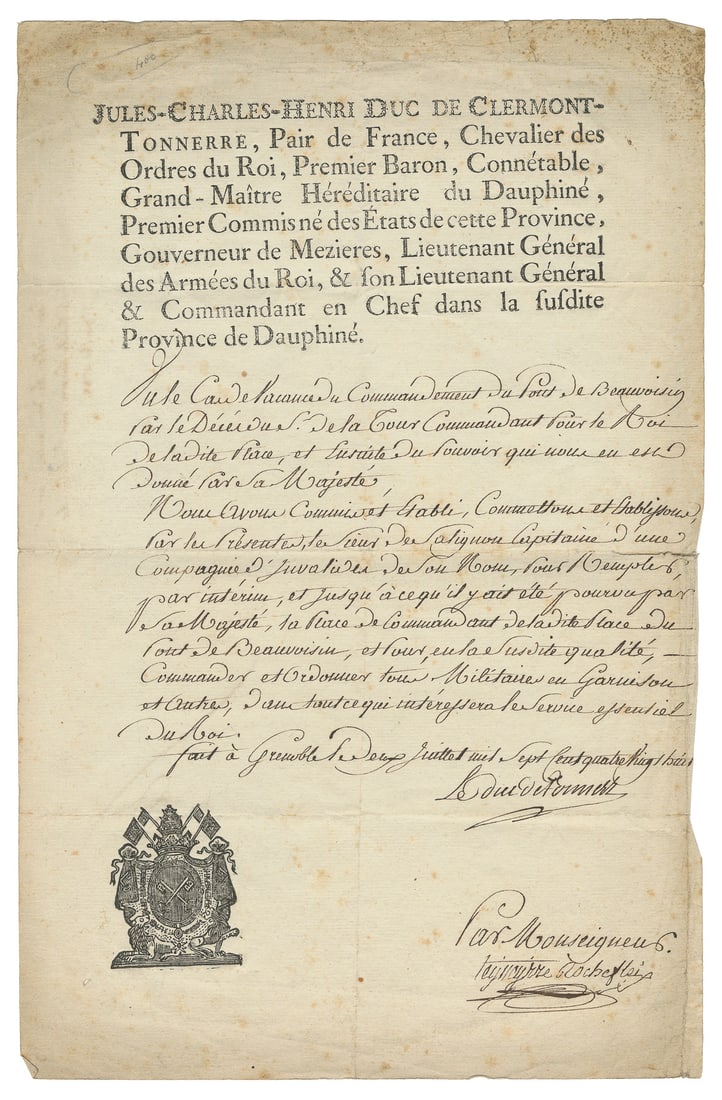 400
JULES-CHARLES-HENRI DUC DE CLERMONT-
TONNERRE, Pair de France, Chevalier des
Ordres du Roi, Premier Baron, Connétable,
Grand-Maître Héréditaire du Dauphiné,
Premier Commis né des États de cette Province,
Gouverneur de Mezieres, Lieutenant Général
des Armées du Roi, & ſon Lieutenant Général
& Commandant en Chef dans la ſuſdite
Province de Dauphiné.
Vu le Cas de Vacance du Commandement du Pont de Beauvoisin
Par le Décès du Sr. de la Tour Commandant Pour le Roi
de ladite Place, et Ensuite du Pouvoir qui nous en est
Donné Par Sa Majesté,
Nous Avons Commis et Etabli, Commettons et Etablissons,
Par les Présentes, le Sieur de Salignon Capitaine d'une
Compagnie d'Invalides de Son Nom, Pour Remplir,
par intérim, et Jusqu'à ce qu'il y ait été pourvu par
Sa Majesté, la Place de Commandant de ladite Place du
Pont de Beauvoisin, et Pour, en la Susdite qualité, —
Commander et Ordonner tous Militaires en Garnison
et Autres, dans tout ce qui intéressera le Service essentiel
du Roi.
fait à Grenoble le Deux Juillet mil Sept Cent quatre Vingt huit
Le duc de Tonnerre
Par Monseigneur.